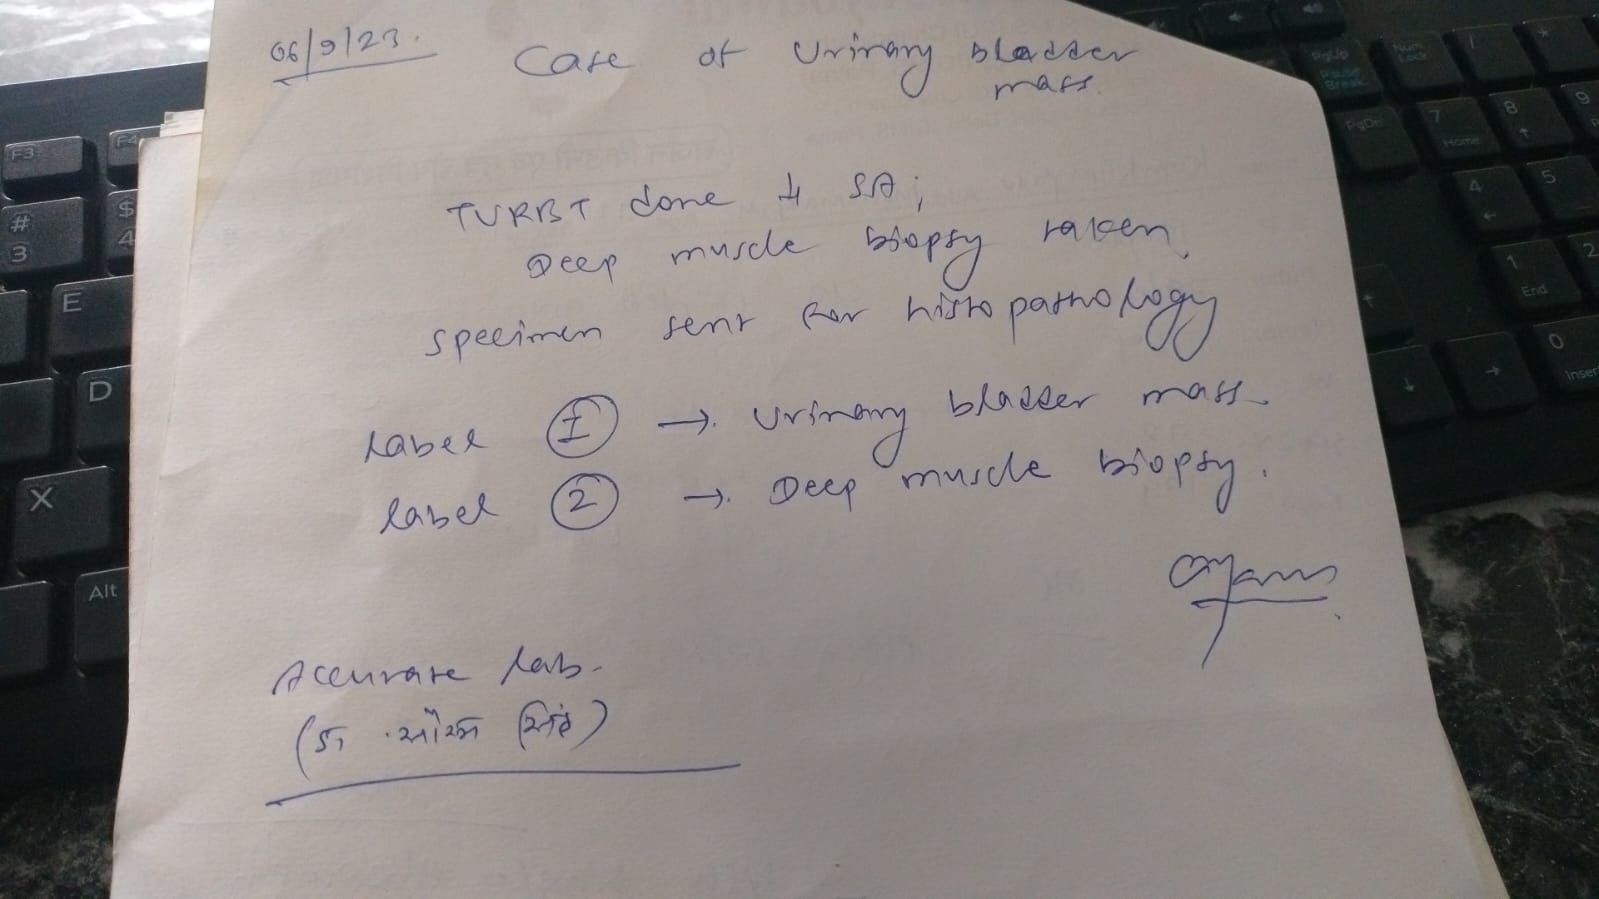 06/9/23.
Case of Urinary bladder
mass.
TURBT done ↓ SA;
Deep muscle biopsy taken.
Specimen sent for histopathology
Label ① → Urinary bladder mass.
Label ② → Deep muscle biopsy.
Accurate Lab.
(डा सिंह)
F3
F4
#
3
$
4
E
D
X
Alt
PgUp
Pause
Break
Num
Lock
/
*
PgDn
7
Home
8
9
4
5
1
End
2
0
Inser